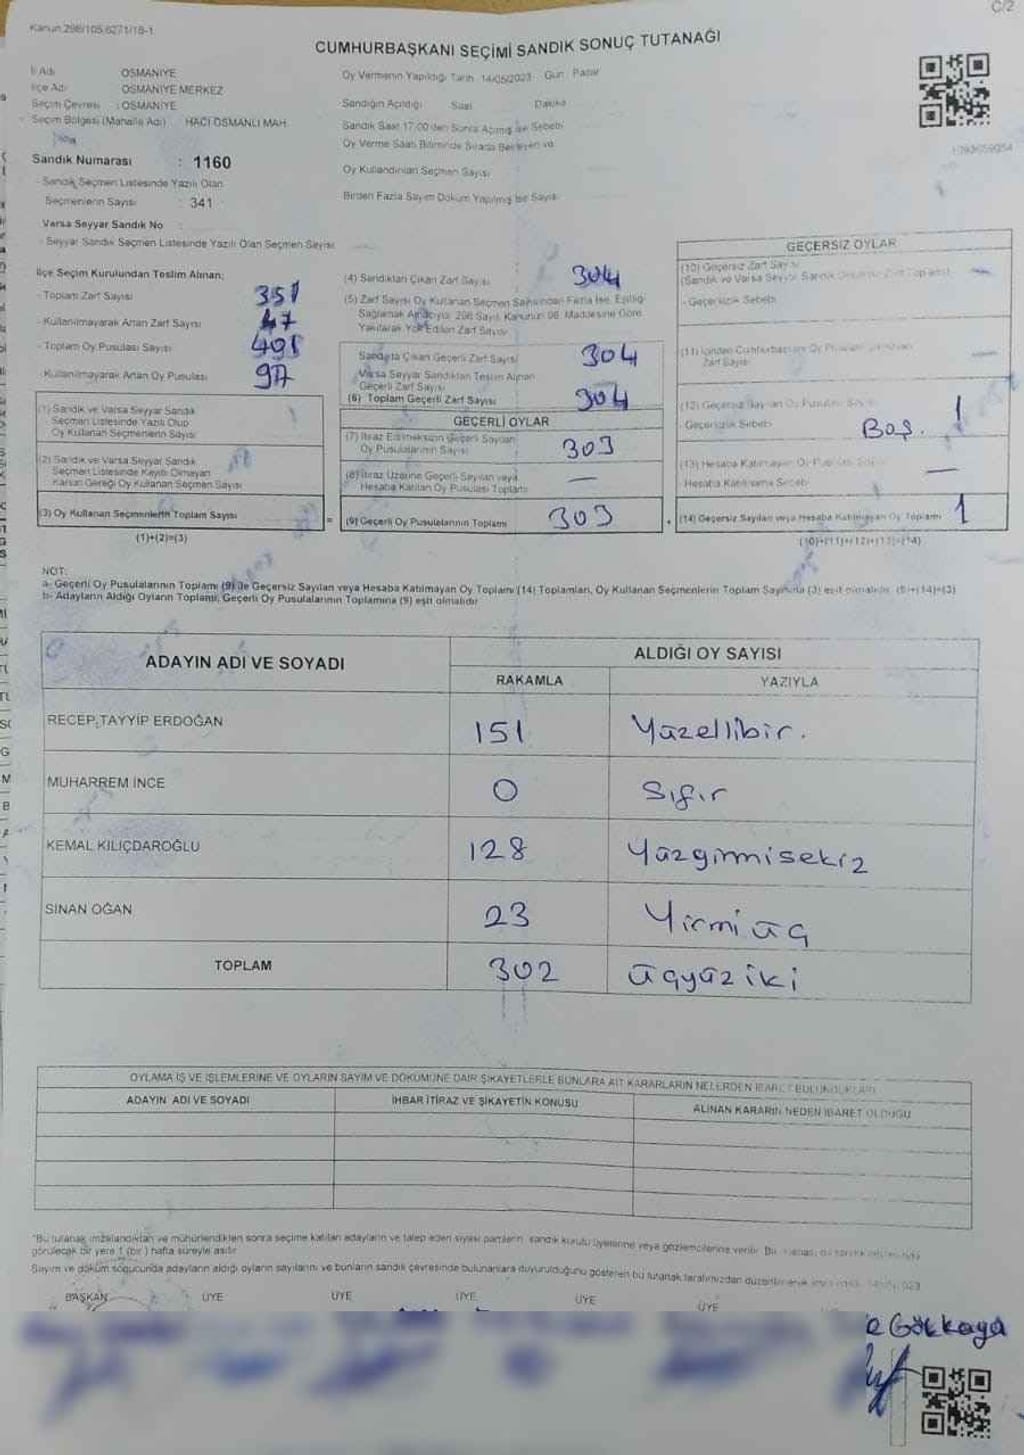 C/2
Kanun 298/105,6271/18-1
CUMHURBAŞKANI SEÇİMİ SANDIK SONUÇ TUTANAĞI
İl Adı OSMANİYE
İlçe Adı OSMANİYE MERKEZ
Seçim Çevresi : OSMANİYE
Seçim Bölgesi (Mahalle Adı) HACI OSMANLI MAH.
Sandık Numarası : 1160
- Sandık Seçmen Listesinde Yazılı Olan
Seçmenlerin Sayısı : 341
Varsa Seyyar Sandık No
- Seyyar Sandık Seçmen Listesinde Yazılı Olan Seçmen Sayısı
Oy Vermenin Yapıldığı Tarih 14/05/2023 Gün Pazar
Sandığın Açıldığı Saat Dakika
Sandık Saat 17:00'den Sonra Açılmış ise Sebebi
Oy Verme Saati Bitiminde Sırada Bekleyen ve
Oy Kullandırılan Seçmen Sayısı
Birden Fazla Sayım Döküm Yapılmış İse Sayısı
İlçe Seçim Kurulundan Teslim Alınan:
- Toplam Zarf Sayısı 351
- Kullanılmayarak Artan Zarf Sayısı 47
- Toplam Oy Pusulası Sayısı 401
- Kullanılmayarak Artan Oy Pusulası 97
(1) Sandık ve Varsa Seyyar Sandık
Seçmen Listesinde Yazılı Olup
Oy Kullanan Seçmenlerin Sayısı
(2) Sandık ve Varsa Seyyar Sandık
Seçmen Listesinde Kayıtlı Olmayan
Kanun Gereği Oy Kullanan Seçmen Sayısı
(3) Oy Kullanan Seçmenlerin Toplam Sayısı =
(1)+(2)=(3)
(4) Sandıktan Çıkan Zarf Sayısı 304
(5) Zarf Sayısı Oy Kullanan Seçmen Sayısından Fazla İse, Eşitliği
Sağlamak Amacıyla, 298 Sayılı Kanunun 98. Maddesine Göre
Yakılarak Yok Edilen Zarf Sayısı
Sandıkta Çıkan Geçerli Zarf Sayısı 304
Varsa Seyyar Sandıktan Teslim Alınan
Geçerli Zarf Sayısı
(6) Toplam Geçerli Zarf Sayısı 304
GEÇERLİ OYLAR
(7) İtiraz Edilmeksizin Geçerli Sayılan
Oy Pusulalarının Sayısı 303
(8) İtiraz Üzerine Geçerli Sayılan veya
Hesaba Katılan Oy Pusulası Toplamı —
(9) Geçerli Oy Pusulalarının Toplamı 303
GEÇERSİZ OYLAR
(10) Geçersiz Zarf Sayısı
- Geçersizlik Sebebi
Zarf Sayısı
(12) Geçersiz Sayılan Oy Pusulası Sayısı 1
- Geçersizlik Sebebi Boş.
(13) Hesaba Katılmayan Oy Pusulası Sayısı —
- Hesaba Katılmama Sebebi
(14) Geçersiz Sayılan veya Hesaba Katılmayan Oy Toplamı 1
(10)+(11)+(12)+(13)=(14)
NOT:
a- Geçerli Oy Pusulalarının Toplamı (9) ile Geçersiz Sayılan veya Hesaba Katılmayan Oy Toplamı (14) Toplamları, Oy Kullanan Seçmenlerin Toplam Sayısına (3) eşit olmalıdır. (9)+(14)=(3)
b- Adayların Aldığı Oyların Toplamı, Geçerli Oy Pusulalarının Toplamına (9) eşit olmalıdır
ADAYIN ADI VE SOYADI ALDIĞI OY SAYISI
RAKAMLA YAZIYLA
RECEP TAYYİP ERDOĞAN 151 Yüzellibir.
MUHARREM İNCE 0 Sıfır
KEMAL KILIÇDAROĞLU 128 Yüzgirmisekiz
SİNAN OĞAN 23 Yirmi üç
TOPLAM 302 üçyüz iki
OYLAMA İŞ VE İŞLEMLERİNE VE OYLARIN SAYIM VE DÖKÜMÜNE DAİR ŞİKAYETLERLE BUNLARA AİT KARARLARIN NELERDEN İBARET BULUNDUKLARI
ADAYIN ADI VE SOYADI İHBAR İTİRAZ VE ŞİKAYETİN KONUSU ALINAN KARARIN NEDEN İBARET OLDUĞU
"Bu tutanak imzalandıktan ve mühürlendikten sonra seçime katılan adayların ve talep eden siyasi partilerin sandık kurulu üyelerine veya gözlemcilerine verilir. Bu
görülecek bir yere 1 (bir) hafta süreyle asılır
Sayım ve döküm sonucunda adayların aldığı oyların sayılarını ve bunların sandık çevresinde bulunanlara duyurulduğunu gösteren bu tutanak tarafımızdan düzenlenerek
BAŞKAN ÜYE ÜYE ÜYE ÜYE ÜYE
e Gökkaya